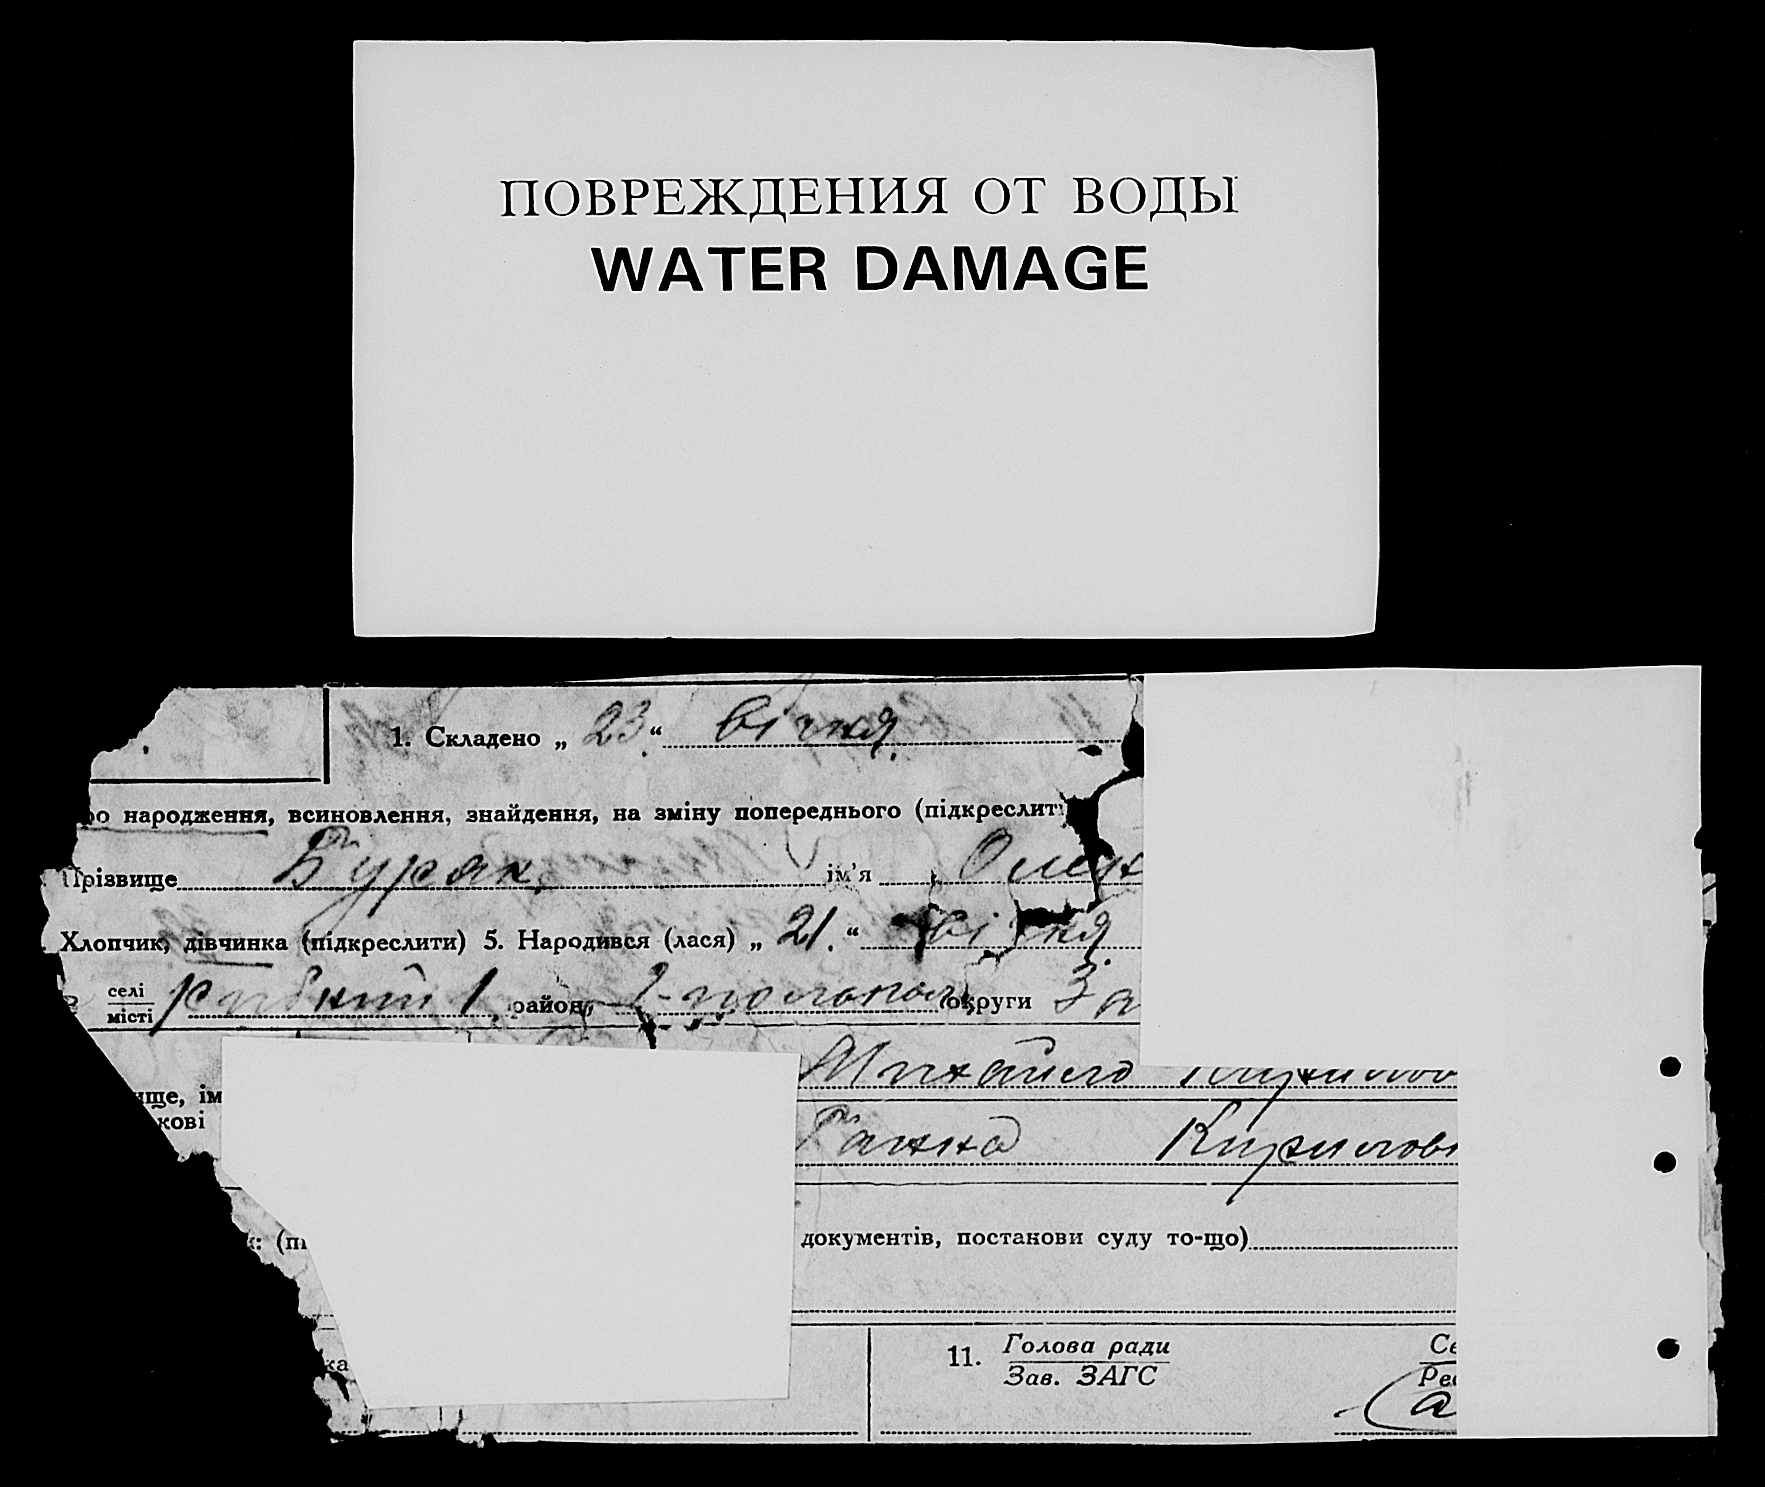 ПОВРЕЖДЕНИЯ ОТ ВОДЫ
WATER DAMAGE
1. Складено „ 23 “ січня
ро народження, всиновлення, знайдення, на зміну попереднього (підкреслит
Прізвище Буряк ім’я Олен
Хлопчик, дівчинка (підкреслити) 5. Народився (лася) „ 21. “ січня
селі
місті
район округи За
Михайло
ище, ім
кові
Ганна Кирилов
(пі документів, постанови суду то-що)
ка
11. Голова ради
Зав. ЗАГС
Се
Ре